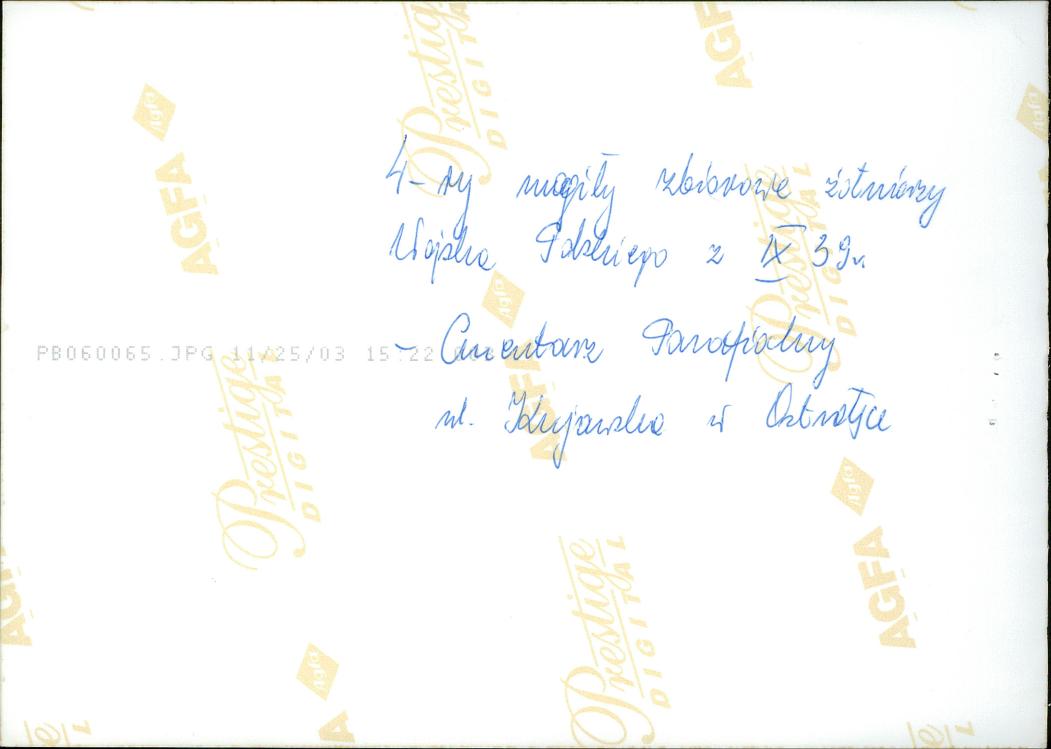 4-ry mogiły zbiorowe żołnierzy
Wojska Polskiego z IX 39r.
- Cmentarz Parafialny
ul. Kujawska w
PB060065.JPG 11/25/03 15:22
AGFA
Agfa
Prestige
DIGITAL